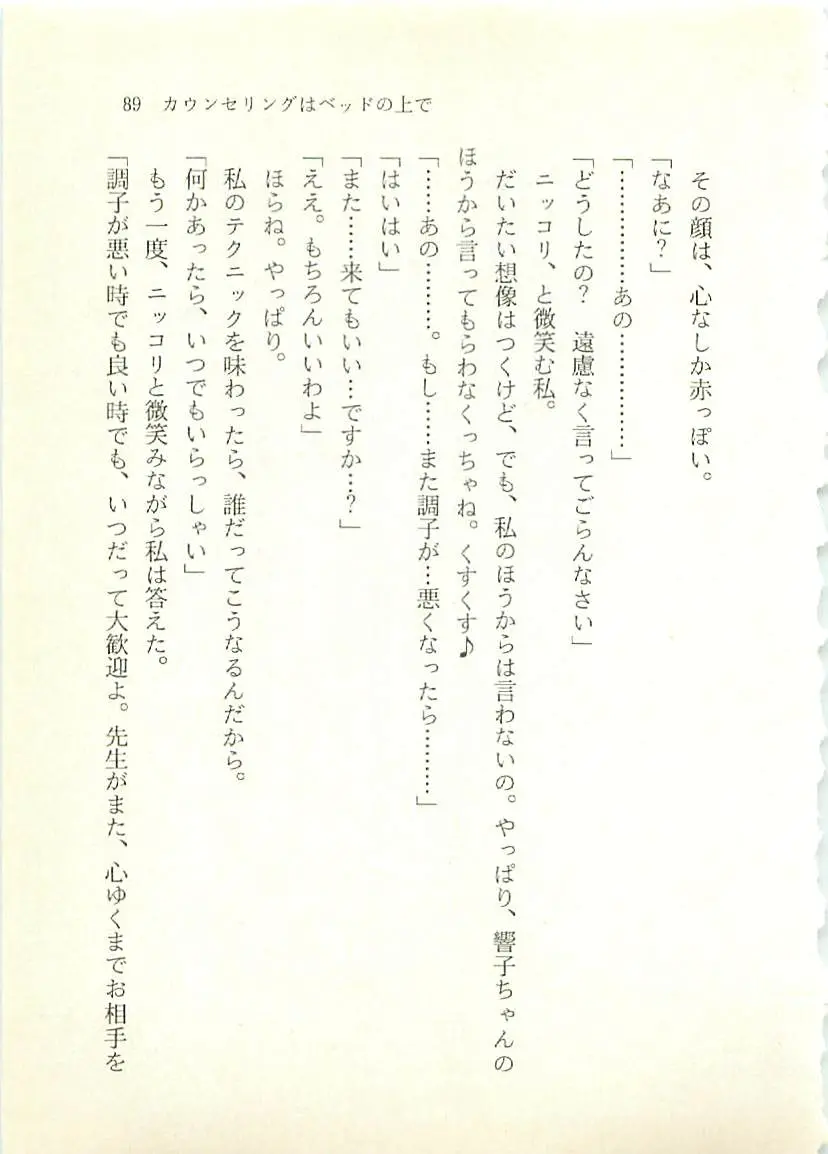 89 カウンセリングはベッドの上で
その顔は、心なしか赤っぽい。
「なあに？」
「………………あの………………」
「どうしたの？　遠慮なく言ってごらんなさい」
ニッコリ、と微笑む私。
だいたい想像はつくけど、でも、私のほうからは言わないの。やっぱり、響子ちゃんの
ほうから言ってもらわなくっちゃね。くすくす♪
「……あの………。もし……また調子が…悪くなったら………」
「はいはい」
「また……来てもいい…ですか…？」
「ええ。もちろんいいわよ」
ほらね。やっぱり。
私のテクニックを味わったら、誰だってこうなるんだから。
「何かあったら、いつでもいらっしゃい」
もう一度、ニッコリと微笑みながら私は答えた。
「調子が悪い時でも良い時でも、いつだって大歓迎よ。先生がまた、心ゆくまでお相手を